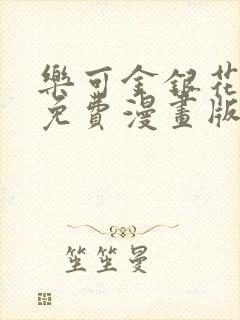 樂可金銀花
免費漫畫版
笙笙曼